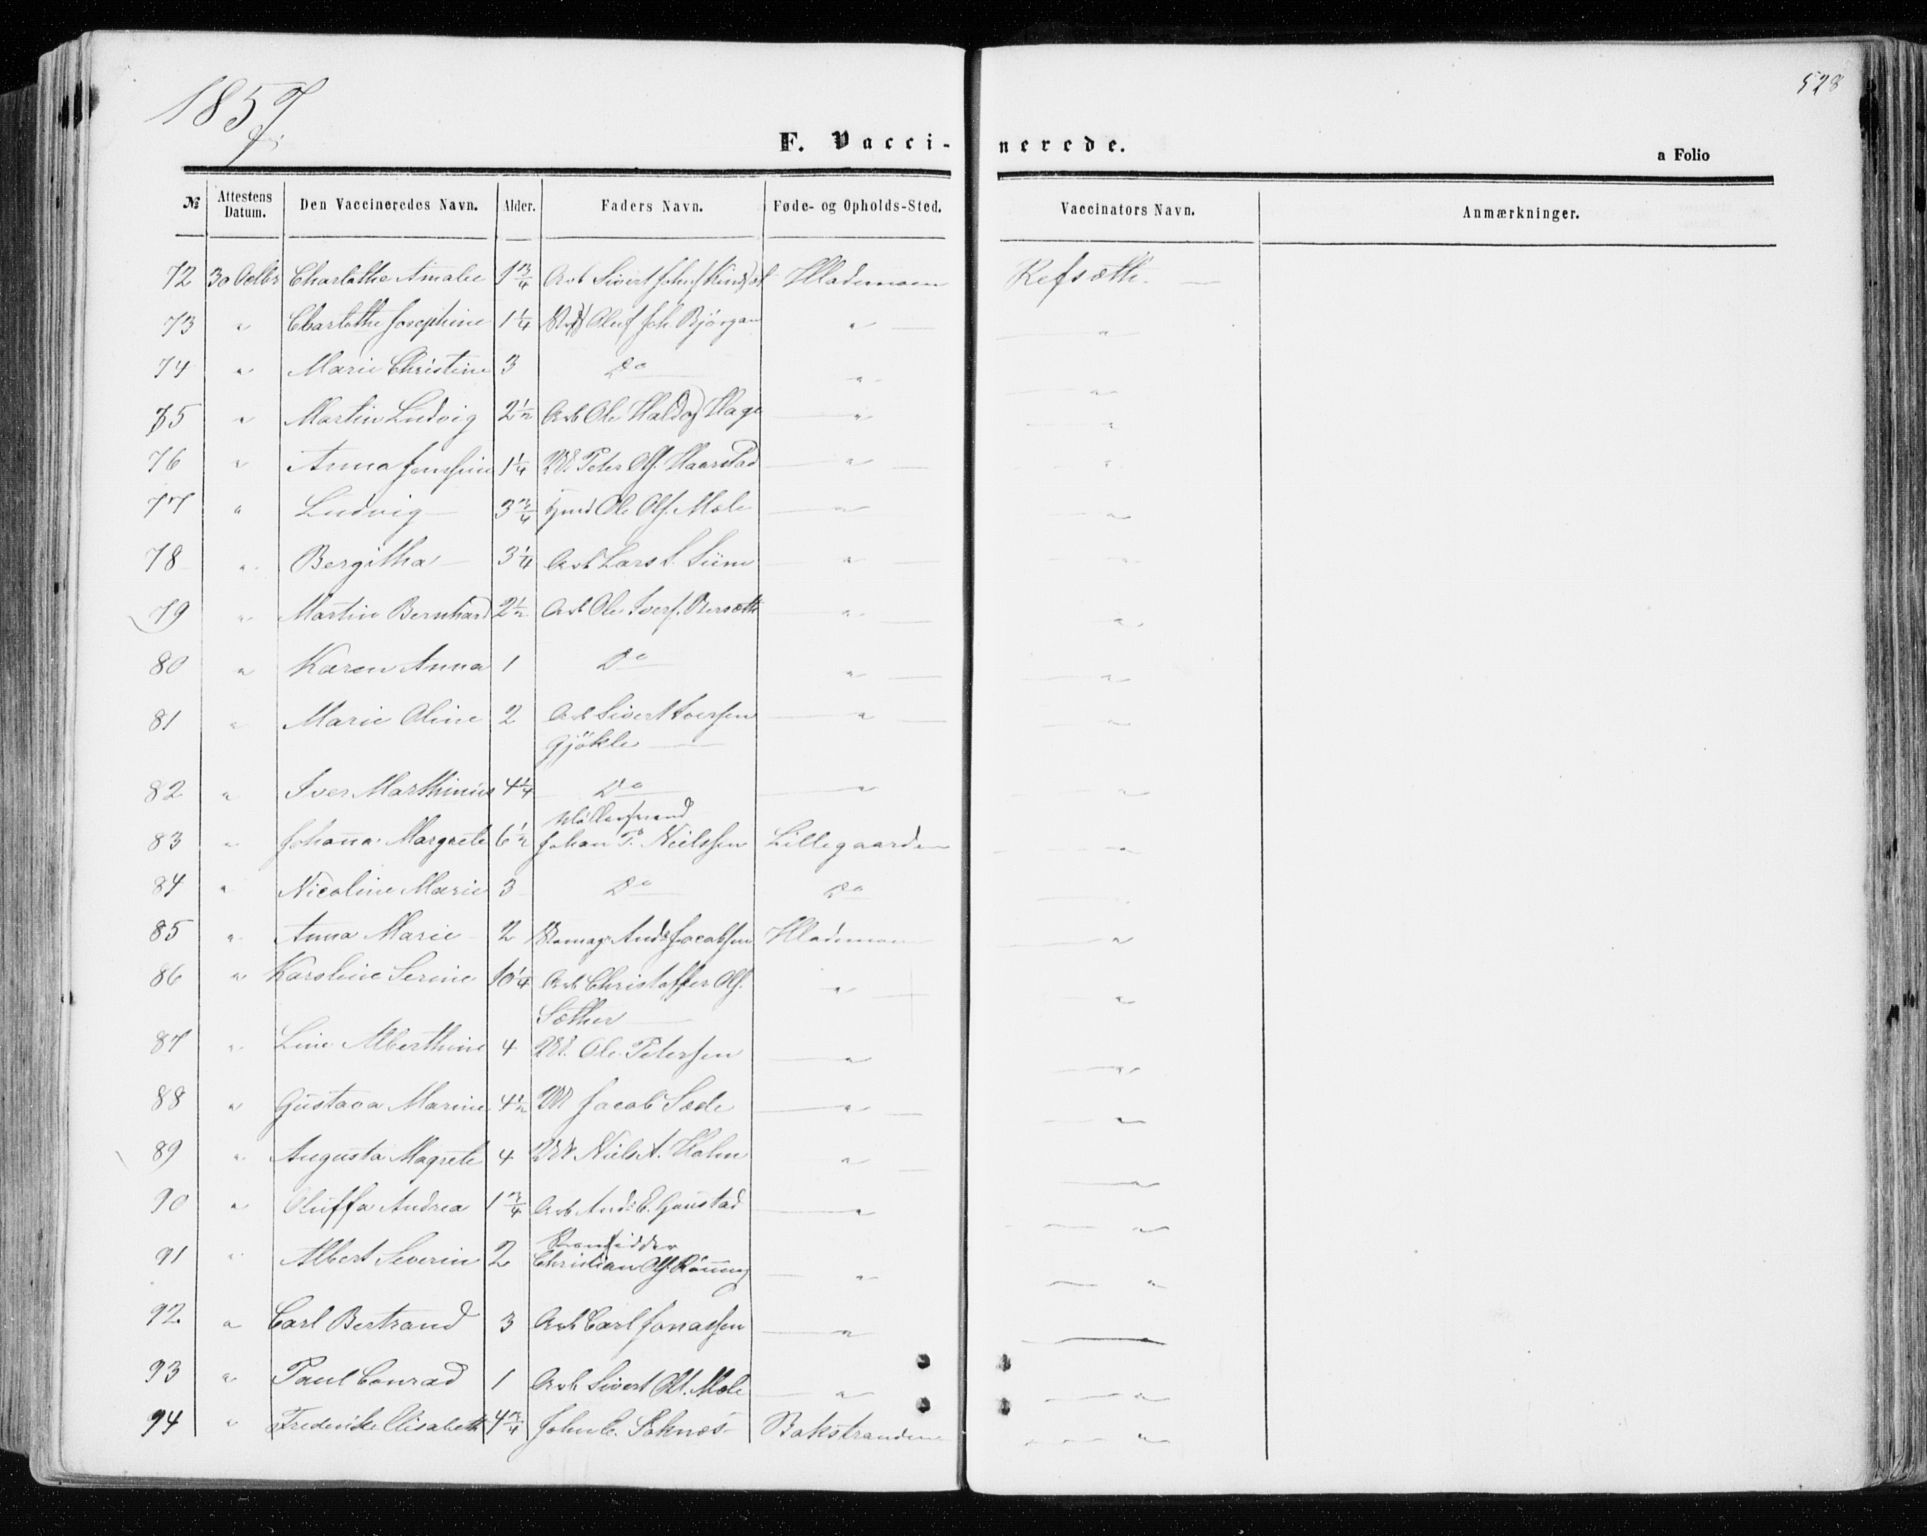 1857
528
F. Vacci-
nerede.
a Folio
№ Attestens Datum. Den Vaccineredes Navn. Alder. Faders Navn. Føde- og Opholds-Sted. Vaccinators Navn. Anmærkninger.
72 30 Octbr Charlothe Amalie 1 3/4 Arb Sivert Hlademoen Refsætth.
73 " Charlothe Josephine 1 1/4 Oluf Joh Bjørgan " "
74 " Marie Christine 3 Do " "
75 " Martin Ludvig 2 1/2 Arb Ole Hage " "
76 " Anna 1 1/4 Peter Ols. Haarstad " "
77 " Ludvig 3 3/4 Ole Ols. Mole " "
78 " Bergitha 3 1/4 Arb Lars L. Siim " "
79 " Martin Bernhard 2 1/2 Arb Ole Ivers. " "
80 " Karen Anna 1 Do " "
81 " Marie Oline 2 Arb Sivert Iversen " "
Gjøkle
82 " Iver Marthinus 4 1/4 Do " "
83 " Johanna Margrete 6 1/2 Møllersvend Johan P. Nielssen Lillegaarden "
84 " Nicoline Marie 3 Do Do "
85 " Anna Marie 2 Ands Jacobsen Hlademoen "
86 " Karoline Serine 10 1/4 Arb Christoffer Ols. " "
Sæther
87 " Line Alberthine 4 Ole Petersen " "
88 " Gustava Marine 4 1/2 Jacob Sæde " "
89 " Augusta Magrete 4 Niels A. Holm " "
90 " Oluffa Andrea 1 3/4 Arb Ands E. Gaustad " "
91 " Albert Severin 2 Christian Ols. Rønning " "
92 " Carl Bertrand 3 Arb Carl Jonassen "
93 " Paul Conrad 1 Arb Sivert Ol. Mole " "
94 " Frederikke Elisabeth 4 3/4 John E. Soknæs Bakstranden "